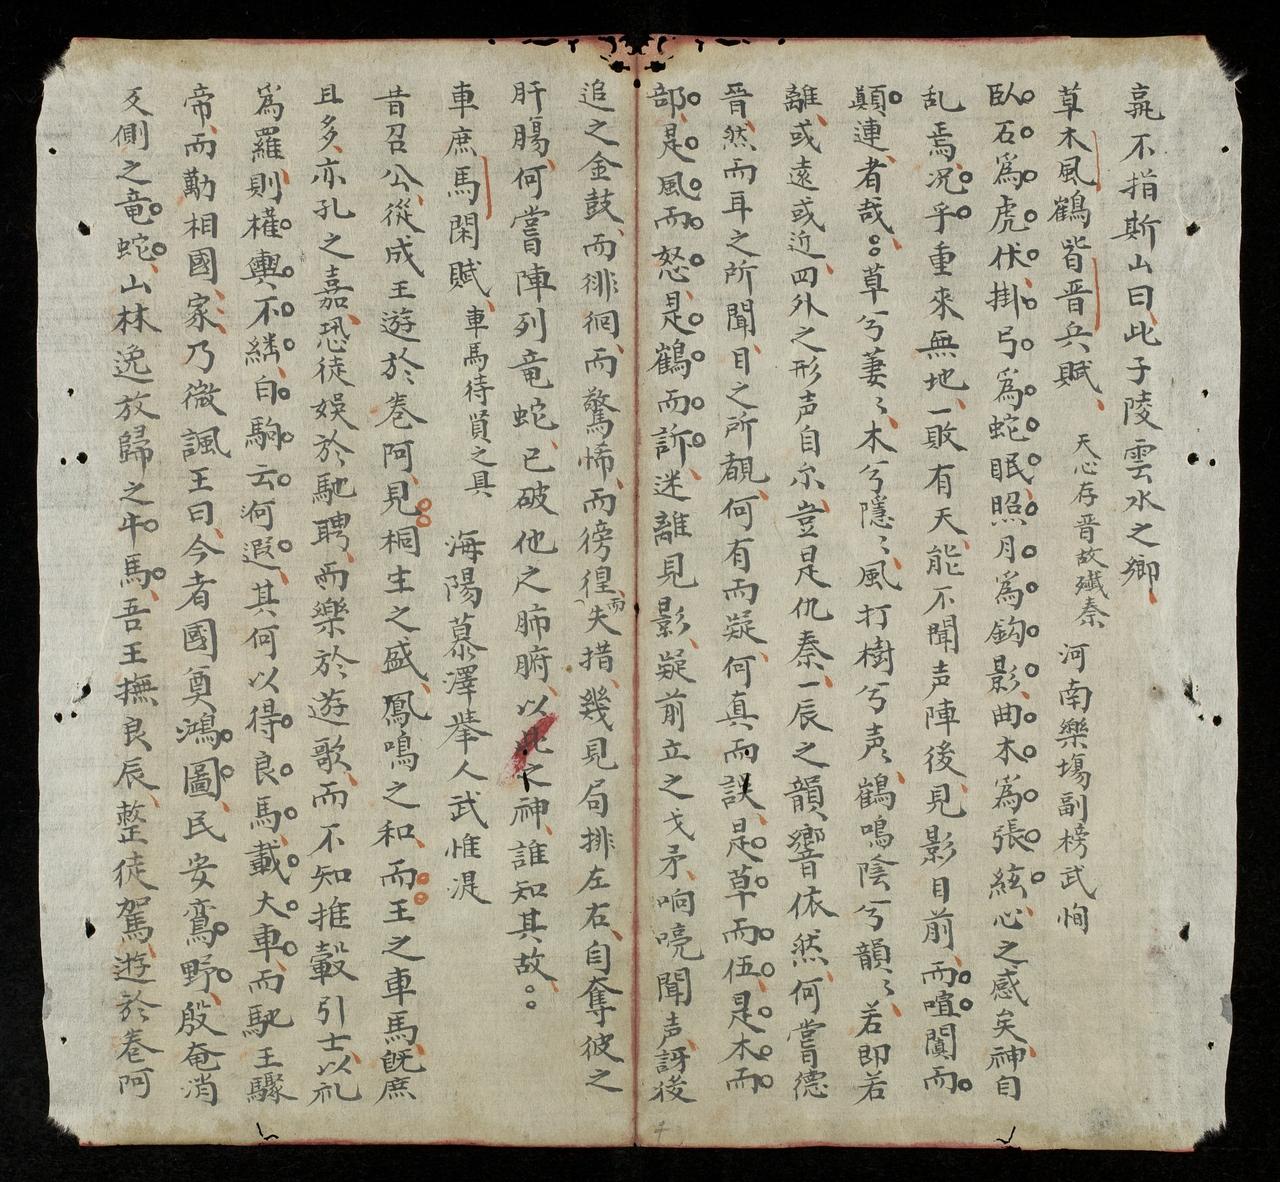 羸不指斯山曰此子陵雲水之鄉
草木風鶴皆晋兵賦 天心存晋故殲秦 河南樂塲副榜武恂
臥石爲虎伏掛弓爲蛇眠照月爲鈎影曲木爲張絃心之感矣神自
乱焉况乎重來無地一敗有天能不聞声陣後見影目前而喧闐而
顛連者哉草兮萋〻木兮隱〻風打樹兮声〻鶴鳴陰兮韻〻若即若
離或遠或近四外之形声自尓豈是仇秦一辰之韻響依然何嘗德
晋然而耳之所聞目之所覩何有而疑何真而誤是草而伍是木而
部是風而怒是鶴而訴迷離見影疑前立之戈矛响喨聞声訝後
追之金鼓而徘徊而驚怖而徬徨而失措幾見局排左右自奪彼之
肝膓何嘗陣列竜蛇已破他之肺腑以此之神誰知其故
車庶馬閑賦 車馬待賢之具 海陽慕澤举人武惟湜
昔召公從成王遊於卷阿見桐生之盛鳳鳴之和而王之車馬旣庶
且多亦孔之嘉恐徒娯於馳騁而樂於遊歌而不知推轂引士以礼
爲羅則權輿不綉白駒云何遐其何以得良馬載大車而馳王驟
帝而勤相國家乃微諷王曰今者國奠鴻圖民安鴛野殷奄消
反側之竜蛇山林逸放歸之牛馬吾王撫良辰整徒駕遊於卷阿